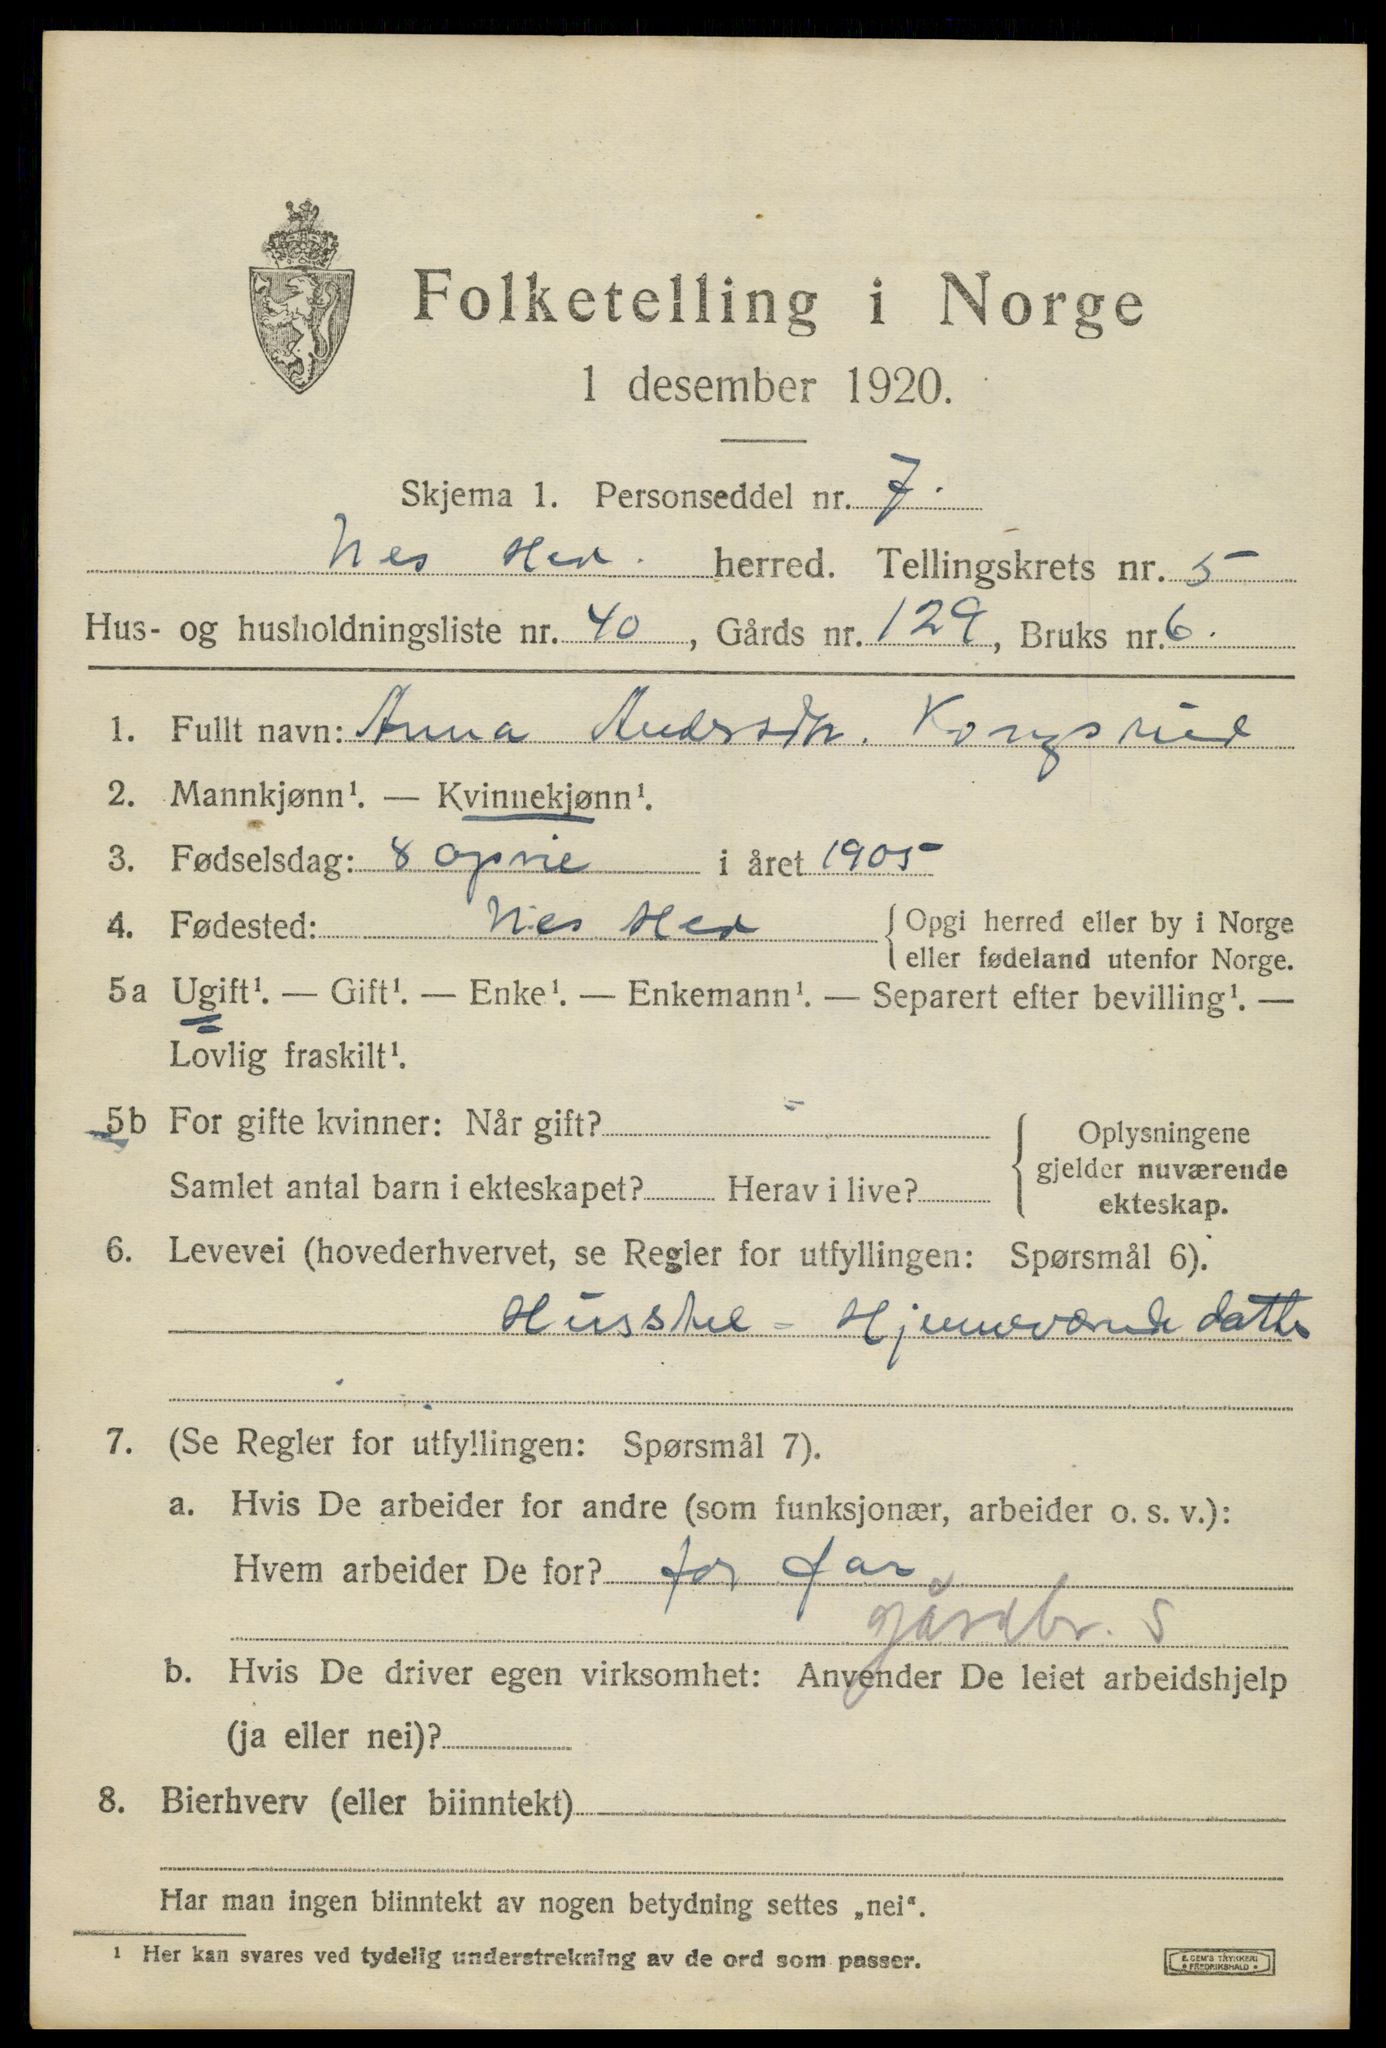 Folketelling i Norge
1 desember 1920.
Skjema 1. Personseddel nr. 7.
Nes Hed. herred. Tellingskrets nr. 5
Hus- og husholdningsliste nr. 40, Gårds nr. 129, Bruks nr. 6.
1. Fullt navn: Anna Andersdtr. Kongsrud
2. Mannkjønn¹. — Kvinnekjønn¹.
3. Fødselsdag: 8 april i året 1905
4. Fødested: Nes Hed {Opgi herred eller by i Norge
eller fødeland utenfor Norge.
5a Ugift¹. — Gift¹. — Enke¹. — Enkemann¹. — Separert efter bevilling¹. —
Lovlig fraskilt¹.
5b For gifte kvinner: Når gift? {Oplysningene
gjelder nuværende
ekteskap.
Samlet antal barn i ekteskapet? Herav i live?
6. Levevei (hovederhvervet, se Regler for utfyllingen: Spørsmål 6).
Husstel - Hjemmeværende datter
7. (Se Regler for utfyllingen: Spørsmål 7).
a. Hvis De arbeider for andre (som funksjonær, arbeider o. s. v.):
Hvem arbeider De for? for far
gårdbr. S
b. Hvis De driver egen virksomhet: Anvender De leiet arbeidshjelp
(ja eller nei)?
8. Bierhverv (eller biinntekt)
Har man ingen biinntekt av nogen betydning settes „nei“.
¹ Her kan svares ved tydelig understrekning av de ord som passer.
E. SEM'S TRYKKERI
FREDRIKSHALD